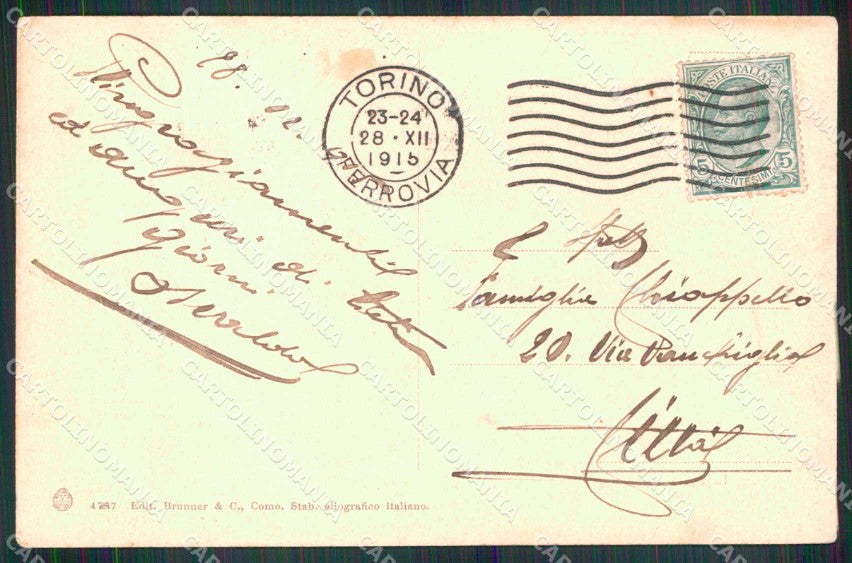 28. 12.
Ringraziamenti
ed auguri di lieti
giorni
TORINO
23-24
28 · XII
1915
FERROVIA
POSTE ITALIANE
5 CENTESIMI 5
Famiglia Chiappello
20. Via Vanchiglia
Città
4787 Edit. Brunner & C., Como. Stab. eliografico italiano.
CARTOLINOMANIA